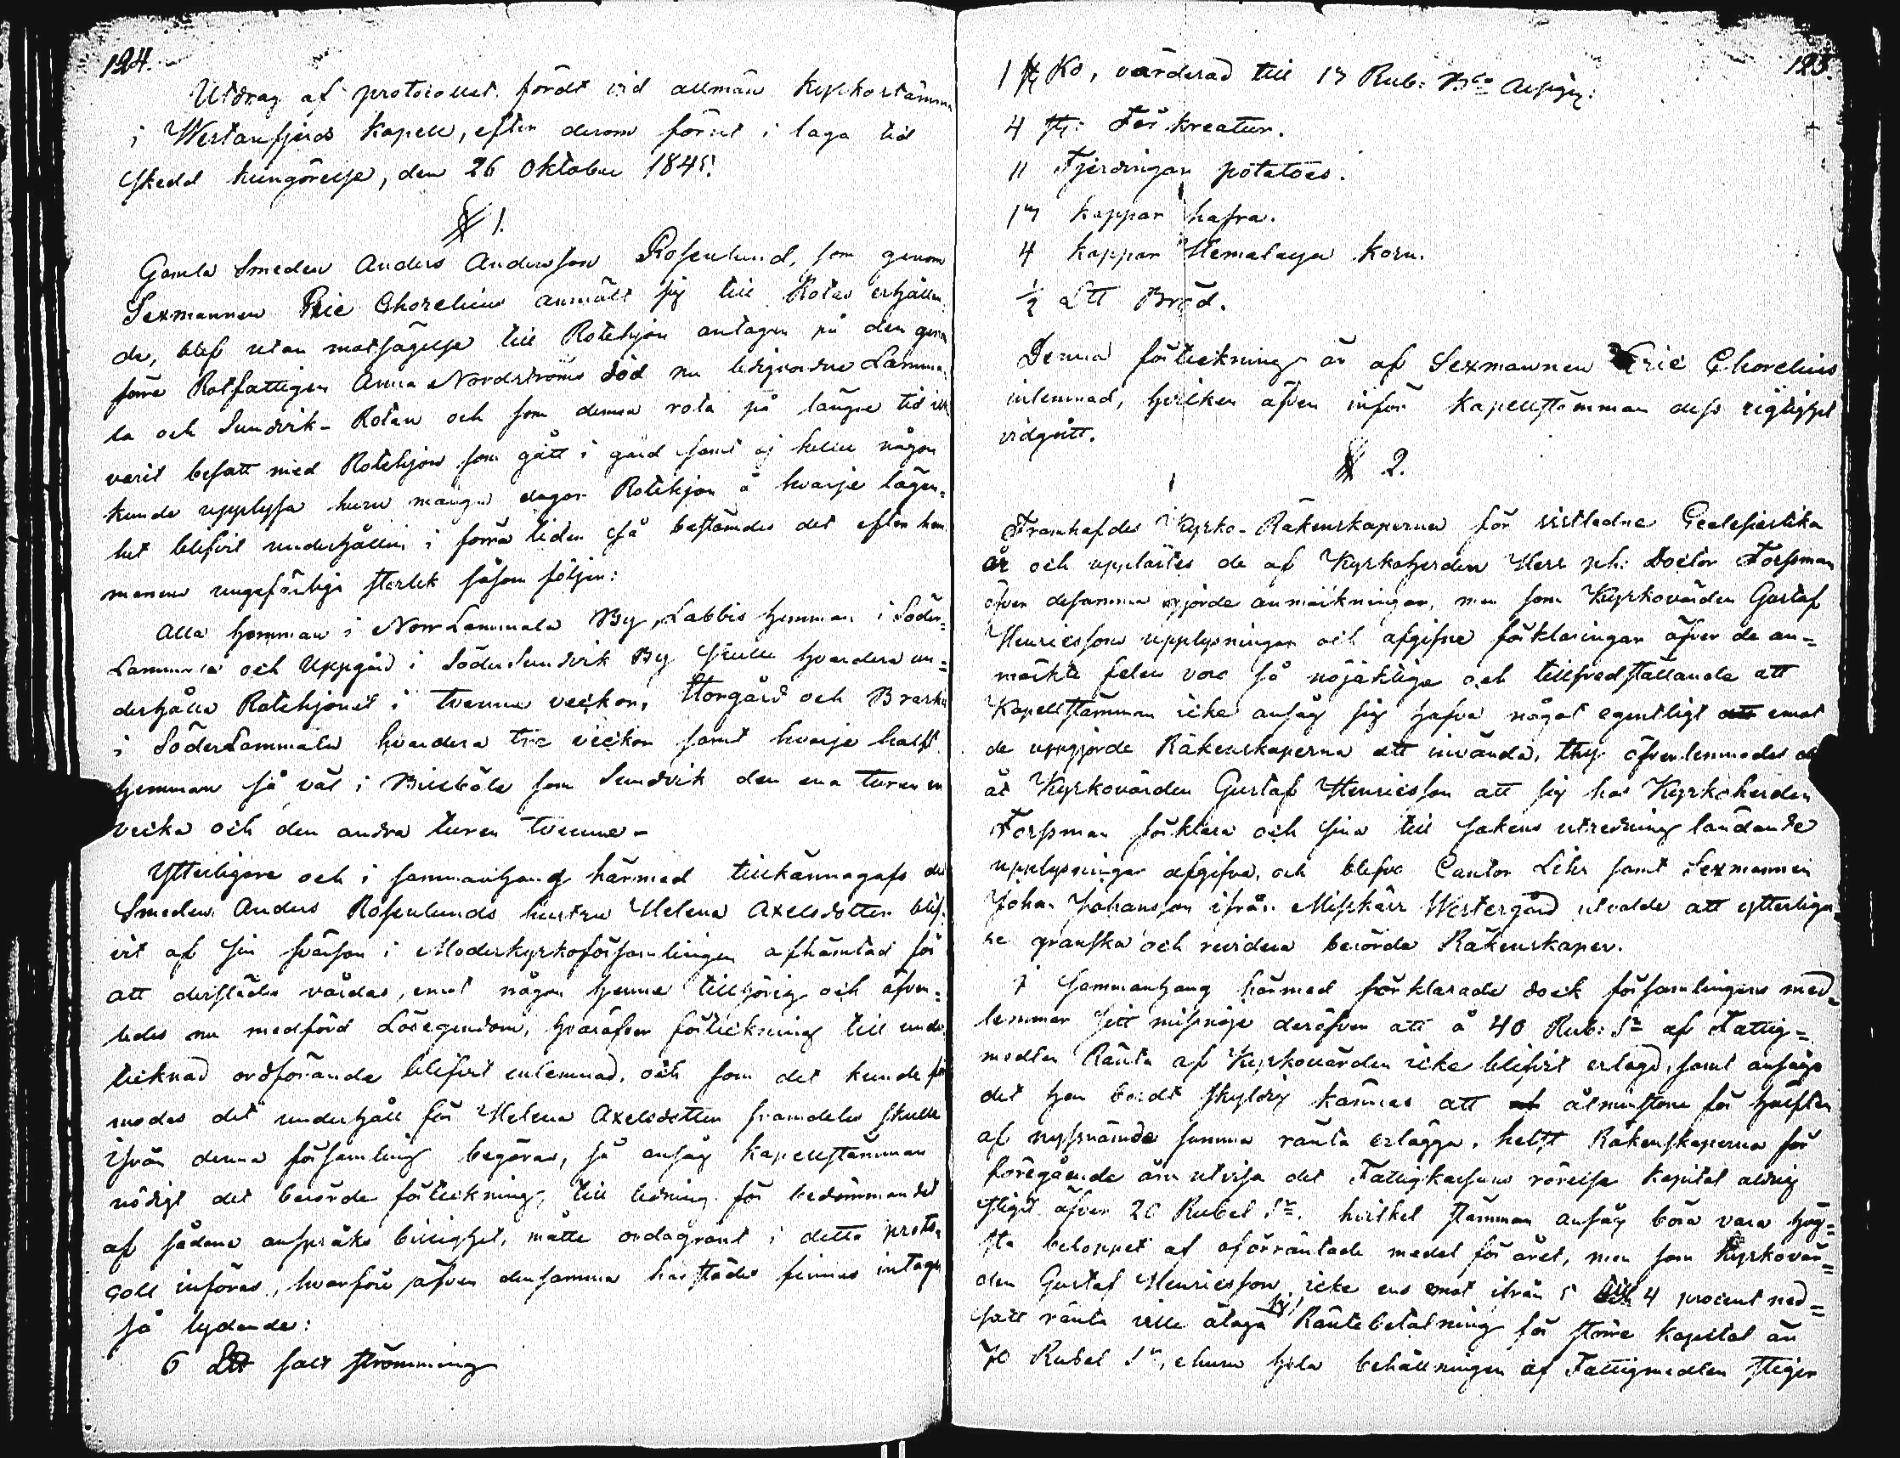 124.
Utdrag af protocollet fördt vid allmän Kyrkostämma
i Westanfjerds Kapell, efter derom förut i laga tid
skedd kungörelse, den 26 Oktober 1845.
§ 1.
Gamla Smeden Anders Andersson Rosenlund, som genom
Sexmannen Eric Ghorelius anmält sig till Rotes erhållan
de, blef utan motsägelse till Rotehjon antagen på den genom
förre Rotfattigen Anna Nordströms död nu ledigvordne Lamma,
la och Sundvik-Rotan och som denna rota på längre tid icke
varit besatt med Rotehjon som gått i gård samt ej heller någon
kunde upplysa huru mången dagar Rotehjon å hvarje lägen,
het blifvit underhållen i förra tider så bestämdes det efter hem
manens ungefärliga storlek såsom följer:
Alla hemman i Norr Lammala By, Labbis hemman i Söder,
Lammala och Uppgård i Söder Sundvik By skulle hvardera un=
derhålla Rotehjonet i tvenne veckor, Storgård och Braskis
i Söder Lammala hvardera tre veckor samt hvarje halft
hemman så väl i Brisböle som Sundvik den ena turen en
vecka och den andra turen tvenne -
Ytterligare och i sammanhang härmed tillkännagafs det
Smeden Anders Rosenlunds hustru Helena Axelsdotter blif,
vit af sin svärson i Moderkyrkoförsamlingen afhämtad för
att derstädes vårdas, emot någon henne tillhörig och äfven=
ledes nu medförd Lösegendom, hvaröfver förteckning till under
tecknad ordförande blifvit inlemnad, och som det kunde för
modas det underhåll för Helena Axelsdotter framdeles skulle
ifrån denna församling begäras, så ansåg Kapellstämman
nödigt det berörde förteckning, till ledning för bedömmandet
af sådana anspråks billighet, måtte ordagrant i detta proto,
coll införas, hvarföre äfven densamma härstädes finnes intagen
så lydande:
6 L℔ salt strömming
125.
1 st Ko, värderad till 17 Rub: B:co Assign:
4 st: Får kreatur.
11 Fjerdingar potatoes.
17 kappar hafra.
4 kappar Hemalaya korn.
½ L℔ Bröd.
Denna förteckning är af Sexmannen Eric Ghorelius
inlemnad, hvilken äfven inför Kapellstämman dess rigtighet
vidgått.
§ 2.
Framhafdes Kyrko-Räkenskaperna för sistledne Ecclesiastika
år och upplästes de af Kyrkoherden Herr ph: Doctor Forssman
öfver desamma gjorde anmärkningar, men som Kyrkovärden Gustaf
Henricsson upplysningar och afgifne förklaringar öfver de an=
märkta felen voro så nöjaktiga och tillfredsställande att
Kapellstämman icke ansåg sig hafva något egentligt emot
de uppgjorde Räkenskaperna att invända, thy öfverlemnades
åt Kyrkovärden Gustaf Henricsson att sig hos Kyrkoherden
Forssman förklara och sina till sakens utredning ländande
upplysningar afgifva, och blefvo Cantor Lihr samt Sexmannen
Johan Johansson ifrån Misskärr Westergård utvalde att ytterliga,
re granska och revidera berörde Räkenskaper.
I sammanhang härmed förklarade dock församlingens med=
lemmar sitt missnöje deröfver att å 40 Rub: S:r af Fattig=
medlen Ränta af Kyrkovärden icke blifvit erlagd, samt ansågo
det han bordt skyldig kännas att åtminstone för hälften
af nyssnämde summa ränta erlägga, helst Räkenskaperna för
föregående åren utvisa det Fattigkassans rörelse kapital aldrig
stigit öfver 20 Rubel S:r, hvilket stämman ansåg böra vara hög=
sta beloppet af oförräntade medel för året, men som Kyrkovär=
den Gustaf Henricsson icke ens emot ifrån 5 till 4 procent ned=
satt ränta ville åtaga sig Räntebetalning för större kapital än
70 Rubel S:r, ehuru hela behållningen af Fattigmedlen stiger